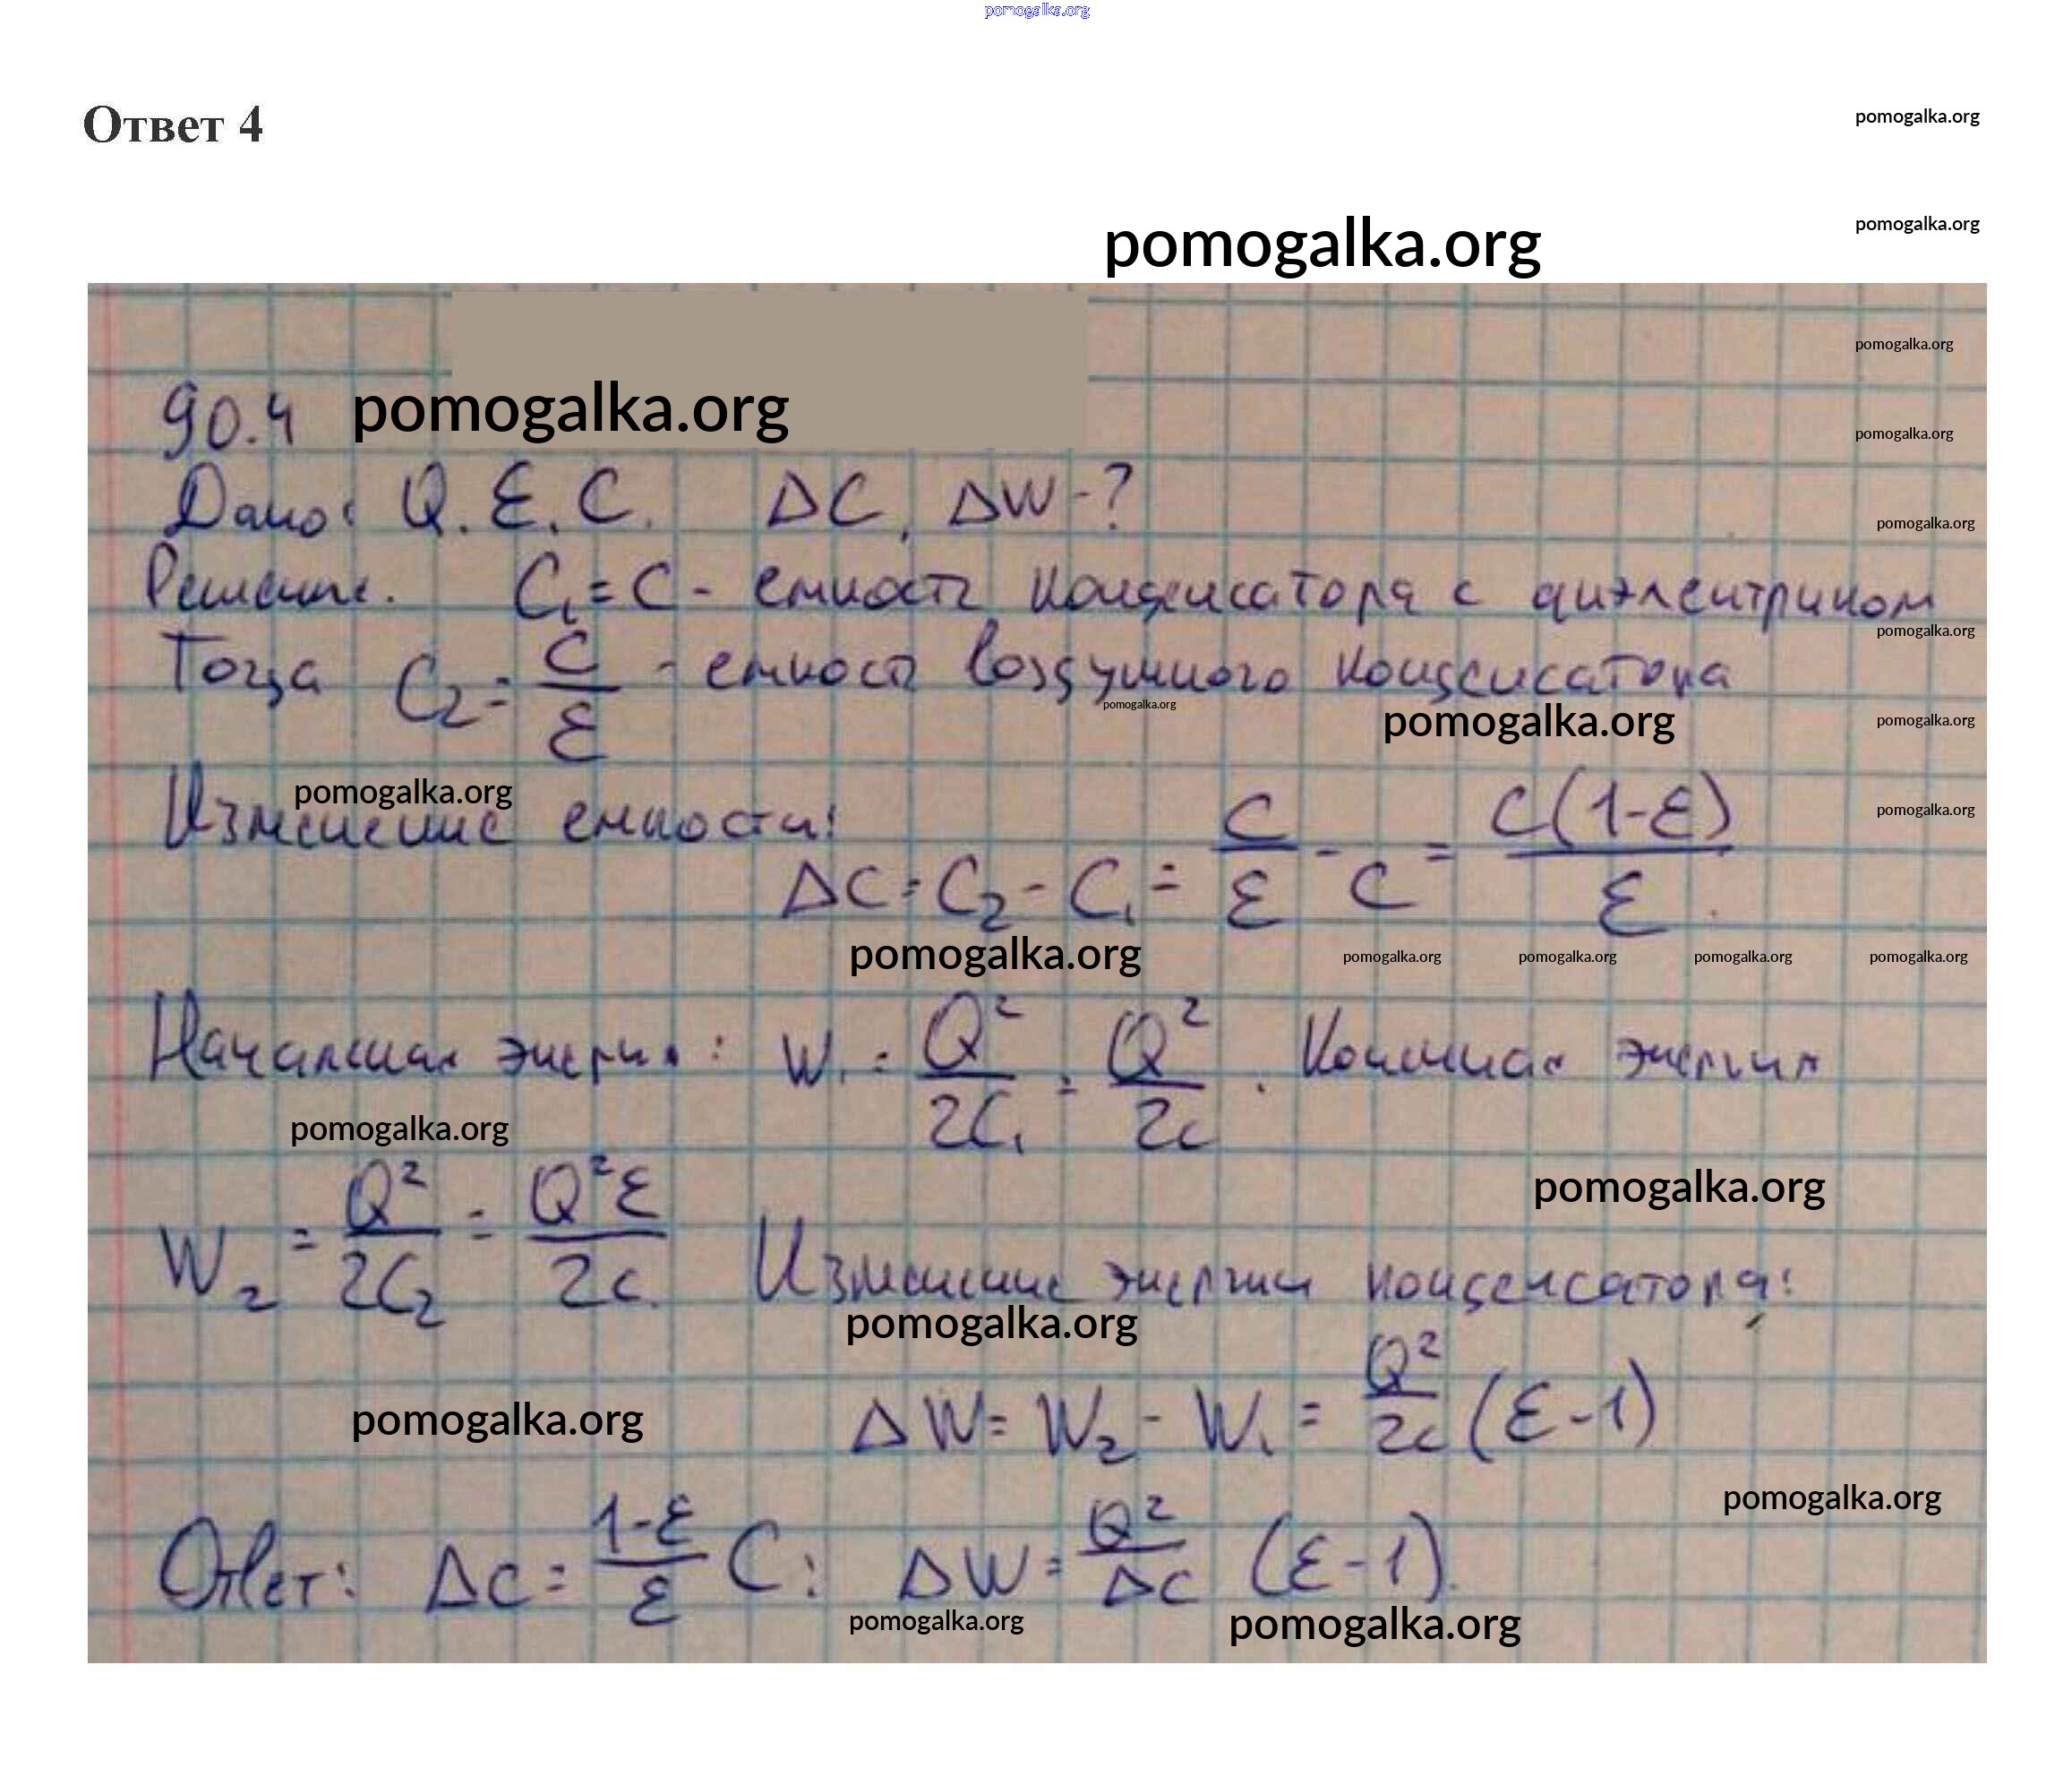 pomogalka.org
Ответ 4
pomogalka.org
pomogalka.org
pomogalka.org
pomogalka.org
90.4 pomogalka.org
pomogalka.org
Дано: Q. ε. C. ΔC, ΔW - ?
pomogalka.org
Решение. C₁ = C - емкость конденсатора с диэлектриком
pomogalka.org
Тогда C₂ = C/ε - емкость воздушного конденсатора
pomogalka.org
pomogalka.org
pomogalka.org
pomogalka.org
Изменение емкости:
pomogalka.org
ΔC = C₂ - C₁ = C/ε - C = C(1-ε)/ε.
pomogalka.org
pomogalka.org pomogalka.org pomogalka.org pomogalka.org
Начальная энергия: W₁ = Q²/2C₁ = Q²/2c. Конечная энергия
pomogalka.org
pomogalka.org
W₂ = Q²/2C₂ = Q²ε/2c. Изменение энергии конденсатора:
pomogalka.org
pomogalka.org
ΔW = W₂ - W₁ = Q²/2c (ε-1)
pomogalka.org
Ответ: ΔC = 1-ε/ε C; ΔW = Q²/ΔC (ε-1).
pomogalka.org
pomogalka.org